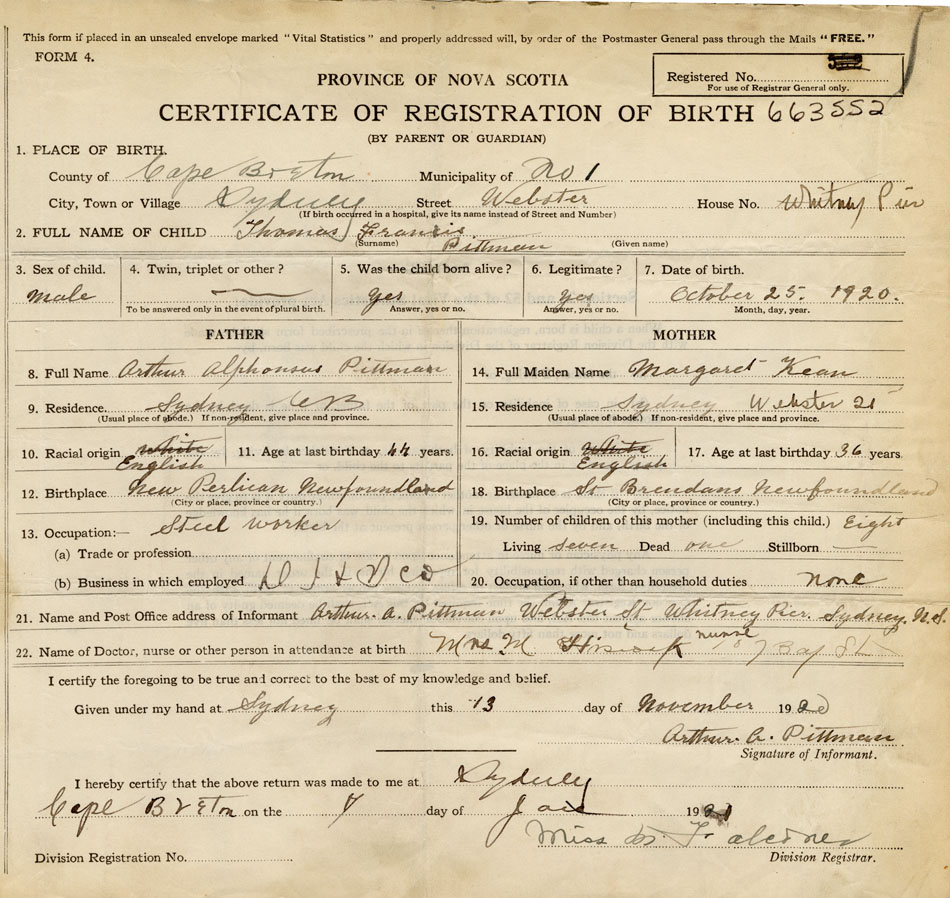 This form if placed in an unsealed envelope marked "Vital Statistics" and properly addressed will, by order of the Postmaster General pass through the Mails "FREE."
FORM 4.
PROVINCE OF NOVA SCOTIA
Registered No.
For use of Registrar General only.
CERTIFICATE OF REGISTRATION OF BIRTH 663552
(BY PARENT OR GUARDIAN)
1. PLACE OF BIRTH.
County of Cape Breton Municipality of No 1
City, Town or Village Sydney Street Webster House No. Whitney Pier
(If birth occurred in a hospital, give its name instead of Street and Number)
2. FULL NAME OF CHILD Thomas Francis
(Surname) Pittman (Given name)
3. Sex of child. 4. Twin, triplet or other? 5. Was the child born alive? 6. Legitimate? 7. Date of birth.
Male yes yes October 25. 1920.
To be answered only in the event of plural birth. Answer, yes or no. Answer, yes or no. Month, day, year.
FATHER MOTHER
8. Full Name Arthur Alphonsus Pittman 14. Full Maiden Name Margaret Kean
9. Residence. Sydney CB 15. Residence Sydney Webster St
(Usual place of abode.) If non-resident, give place and province. (Usual place of abode.) If non-resident, give place and province.
10. Racial origin white 11. Age at last birthday 44 years. 16. Racial origin white 17. Age at last birthday 36 years
English English
12. Birthplace New Perlican Newfoundland 18. Birthplace St Brendans Newfoundland
(City or place, province or country.) (City or place, province or country.)
13. Occupation:— Steel worker 19. Number of children of this mother (including this child.) Eight
(a) Trade or profession Living seven Dead one Stillborn —
(b) Business in which employed D I & S Co 20. Occupation, if other than household duties none
21. Name and Post Office address of Informant Arthur. A. Pittman Webster St Whitney Pier. Sydney. N.S.
22. Name of Doctor, nurse or other person in attendance at birth Mrs M nurse Bay St
I certify the foregoing to be true and correct to the best of my knowledge and belief.
Given under my hand at Sydney this 13 day of November 1920
Arthur. A. Pittman
Signature of Informant.
I hereby certify that the above return was made to me at Sydney
Cape Breton on the 7 day of Jan 1921
Miss
Division Registration No. Division Registrar.